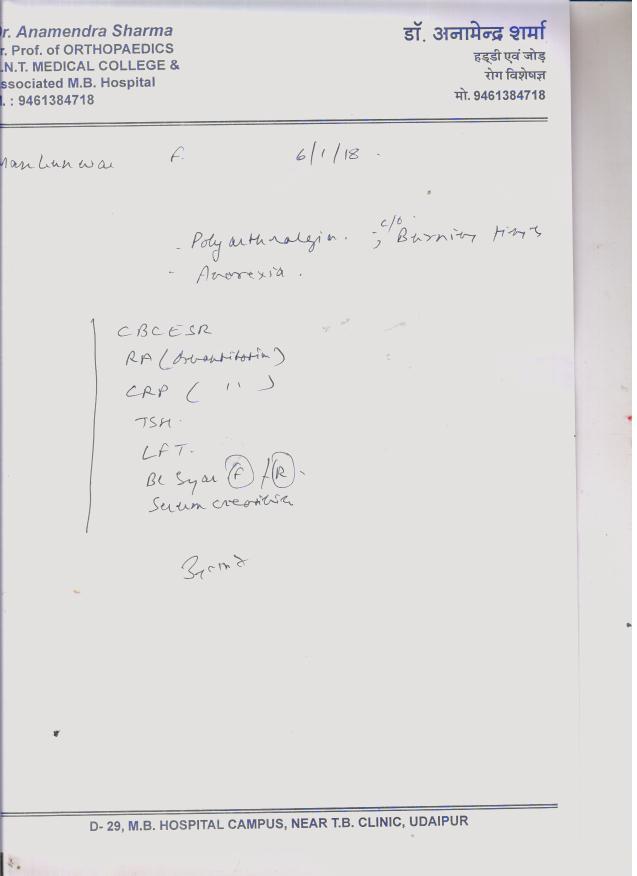 r. Anamendra Sharma
r. Prof. of ORTHOPAEDICS
.N.T. MEDICAL COLLEGE &
ssociated M.B. Hospital
. : 9461384718
डॉ. अनामेन्द्र शर्मा
हड्डी एवं जोड़
रोग विशेषज्ञ
मो. 9461384718
F. 6/1/18
- Polyarthralgia. ; c/o Burning
- Anorexia.
CBC ESR
RA (
CRP ( " )
TSH
LFT.
Bl Sugar F / R.
Serum creatinine
D- 29, M.B. HOSPITAL CAMPUS, NEAR T.B. CLINIC, UDAIPUR